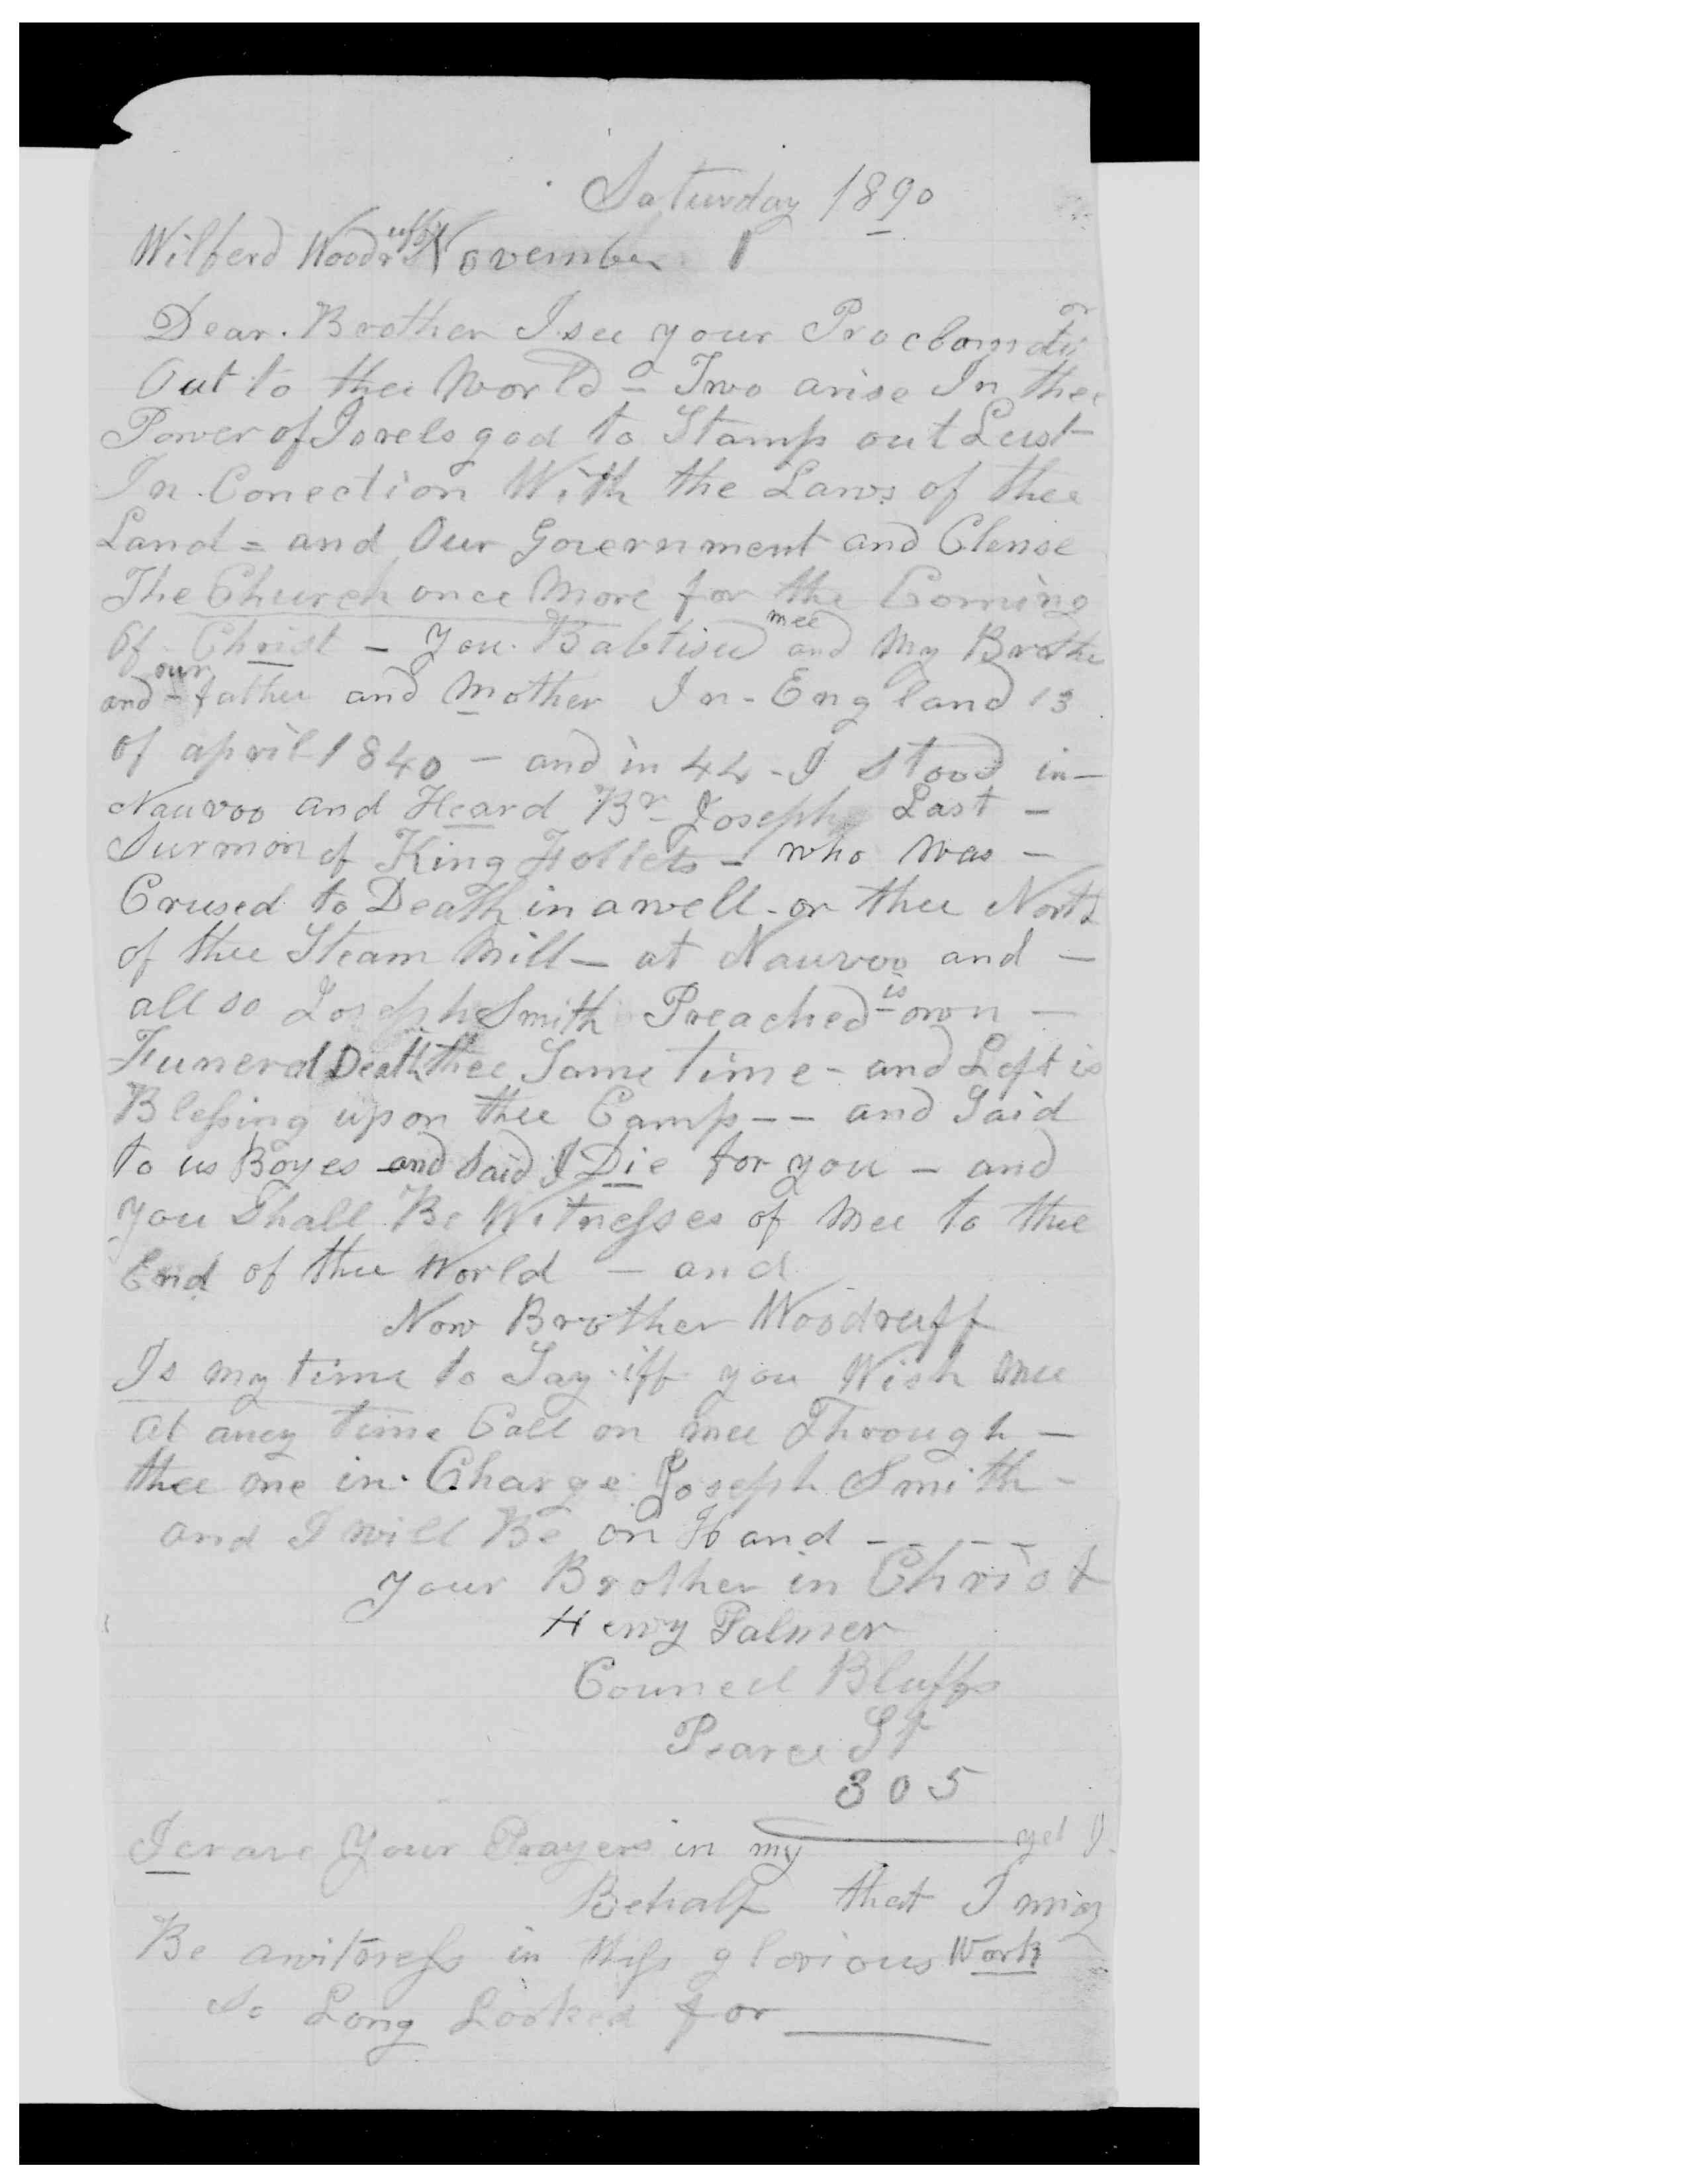 Saturday 1890
Wilferd Woodruff November 1
Dear. Brother I see your Proclomation
Out to thee World = Two arise In thee
Power of Isrels god to Stamp out Lust
In Conection With the Laws of thee
Land = and Our Government and Clense
The Church once More for the Coming
Of Christ - you Babtised mee and My Brother
and - our father and Mother In - England 13
of april 1840 - and in 44 - I stood in -
Nauvoo and Heard Br Joseph Last -
Surmon of King Follets - who was -
Crused to Death in a well - or thee North
of thee Steam Mill - at Nauvoo and -
all so Joseph Smith Preached - is own -
Funeral Death thee Same time - and Left is
Blessing upon thee Camp - - and Said
to us Boyes and said I Die for you - and
you Shall Be Witnesses of Mee to thee
End of thee World - and
Now Brother Woodruff
Is my time to Say iff you Wish Mee
at aney time Call on mee Through -
thee one in Charge Joseph Smith -
and I will Be on Hand - - - -
your Brother in Christ
Henry Palmer
Council Bluffs
Pearce St
305
I crave Your Prayers in my yet I
Behalf that I may
Be a witness in thiss glorious Work
So Long Looked for